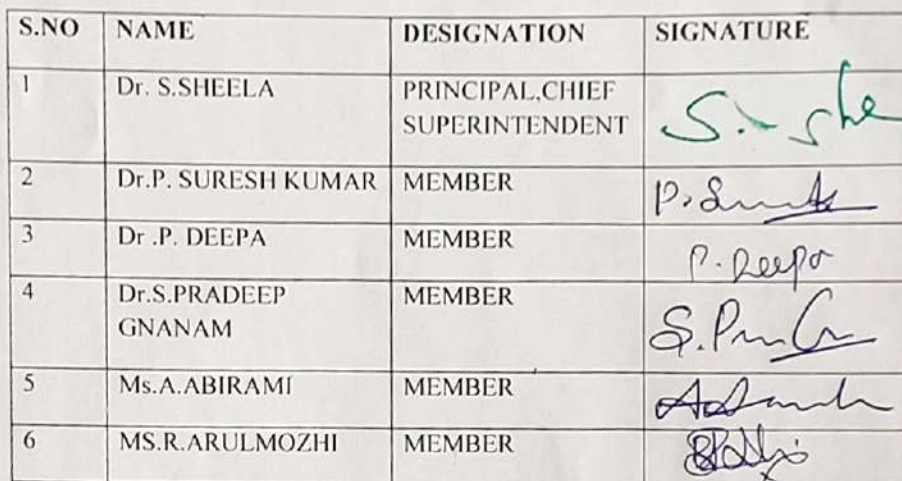 S.NO NAME DESIGNATION SIGNATURE
1 Dr. S.SHEELA PRINCIPAL,CHIEF
SUPERINTENDENT
2 Dr.P. SURESH KUMAR MEMBER
3 Dr .P. DEEPA MEMBER P. Deepa
4 Dr.S.PRADEEP MEMBER
GNANAM
5 Ms.A.ABIRAMI MEMBER
6 MS.R.ARULMOZHI MEMBER